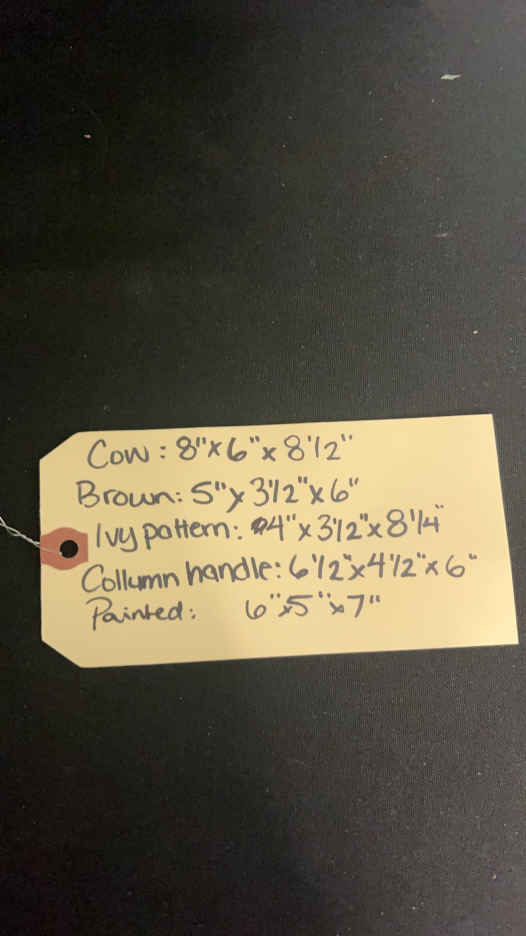 Cow: 8"x6"x8'12"
Brown: 5"x3'12"x6"
Ivy pattern: 4"x3'12"x8'14"
Collumn handle: 6'12"x4'12"x6"
Painted: 6"x5"x7"